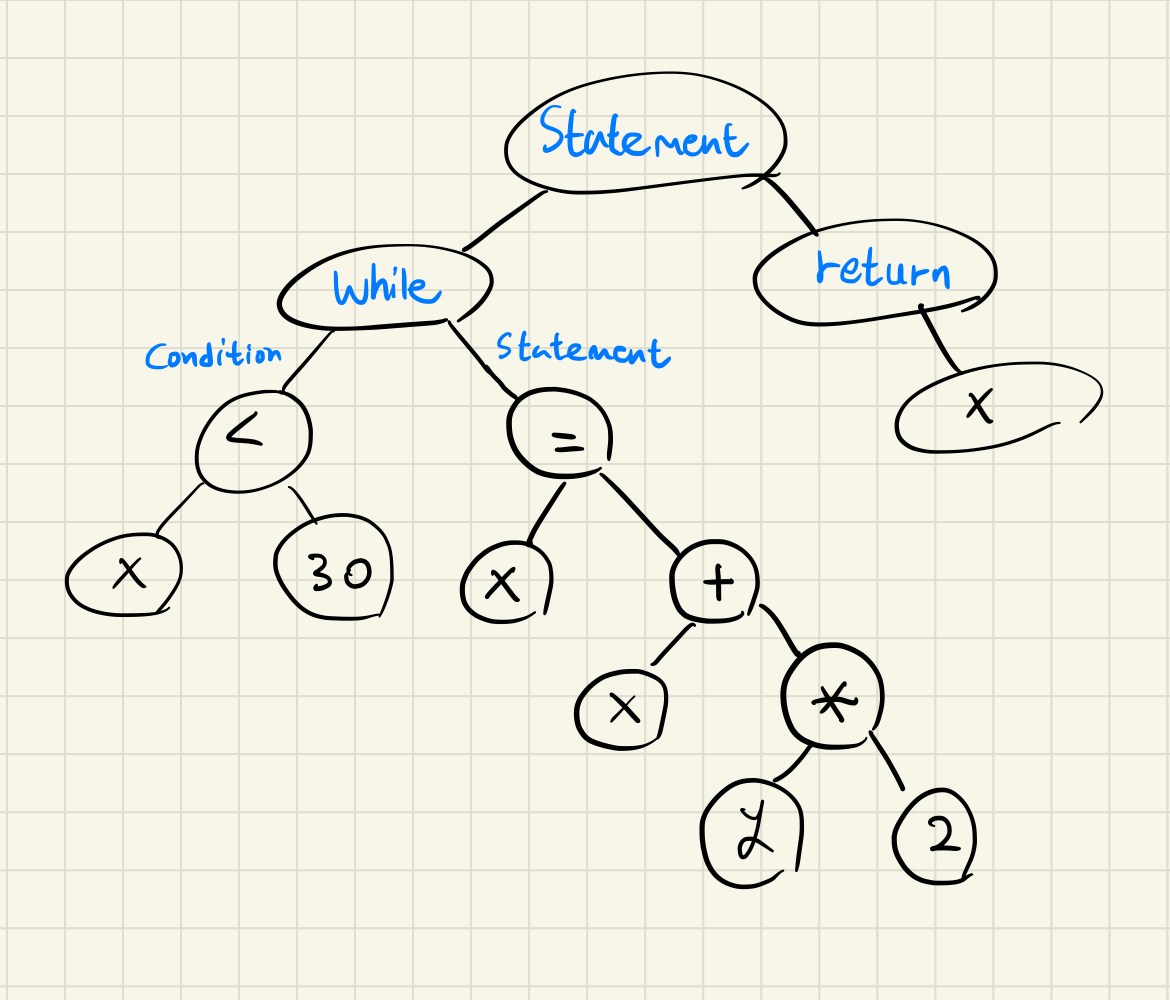 Statement
while
return
Condition
Statement
<
=
x
x
30
x
+
x
*
y
2